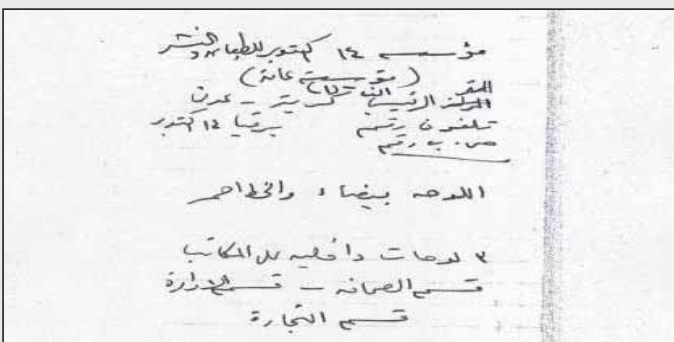 مؤسسه ١٤ اكتوبر للطباعه والنشر
(مؤسسة عامة)
المقر
المركز الرئيسي كريتر - عدن
تلفون رقم برقيا ١٤ اكتوبر
ص. ب رقم
اللوحه بيضاء والخط احمر
٣ لوحات داخليه للمكاتب
قسم الصحافه - قسم الادارة
قسم التجارة